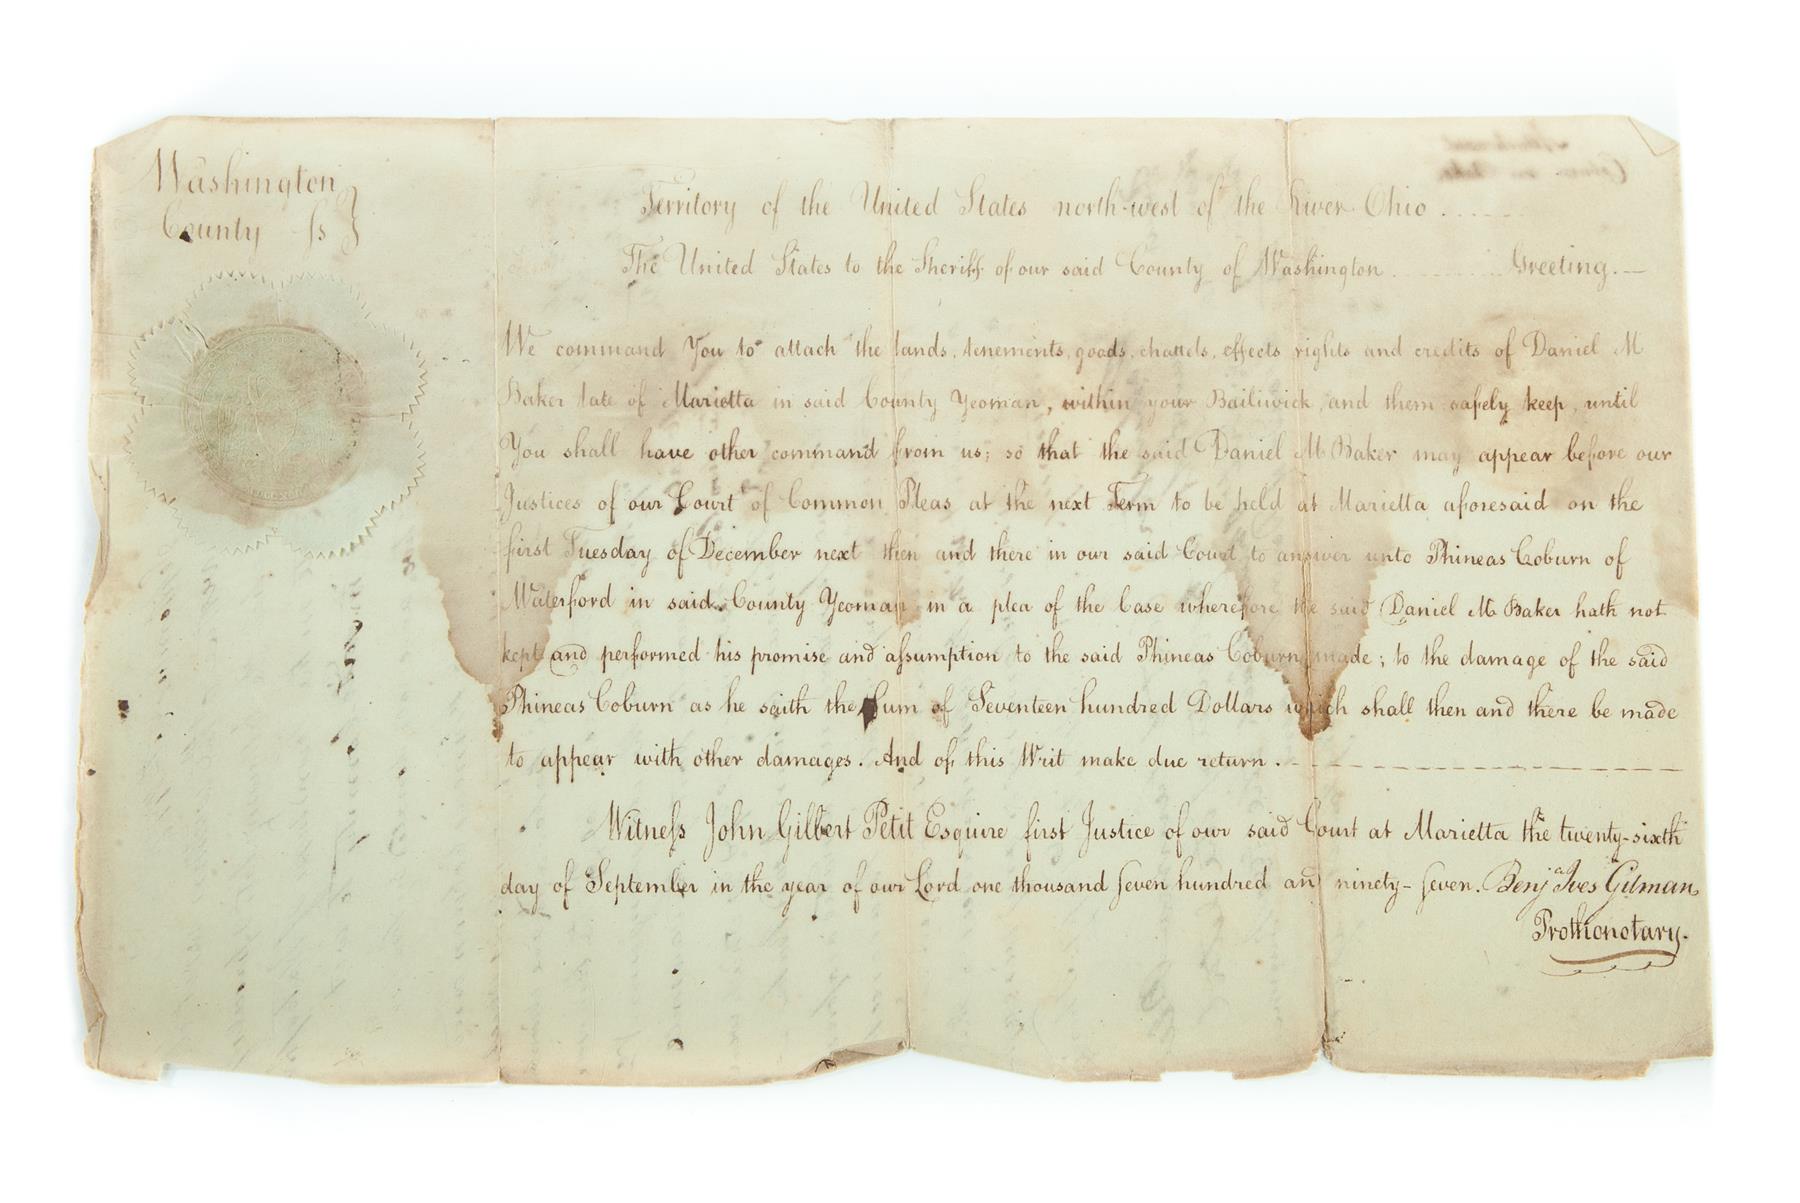 Washington
County ss
Territory of the United States north-west of the River Ohio ......
The United States to the Sheriff of our said County of Washington ........... Greeting.—
We command You to attach the lands, tenements, goods, chattels, effects rights and credits of Daniel M
Baker late of Marietta in said County Yeoman, within your Bailiwick, and them safely keep, until
You shall have other command from us; so that the said Daniel M Baker may appear before our
Justices of our Court of Common Pleas at the next Term to be held at Marietta aforesaid on the
first Tuesday of December next then and there in our said Court to answer unto Phineas Coburn of
Waterford in said County Yeoman in a plea of the Case wherefore the said Daniel M Baker hath not
kept and performed his promise and assumption to the said Phineas Coburn made; to the damage of the said
Phineas Coburn as he saith the Sum of Seventeen hundred Dollars which shall then and there be made
to appear with other damages. And of this Writ make due return.
Witness John Gilbert Petit Esquire first Justice of our said Court at Marietta the twenty-sixth
day of September in the year of our Lord one thousand seven hundred and ninety-seven. Benja Ives Gilman
Prothonotary.